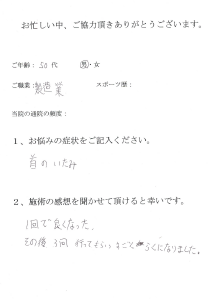 お忙しい中、ご協力頂きありがとうございます。
ご年齢：50代 男・女
ご職業：製造業 スポーツ歴：
当院の通院の頻度：
1、お悩みの症状をご記入ください。
首のいたみ
2、施術の感想を聞かせて頂けると幸いです。
1回で良くなった。
その後3回行ってもらい、すごく らくになりました。